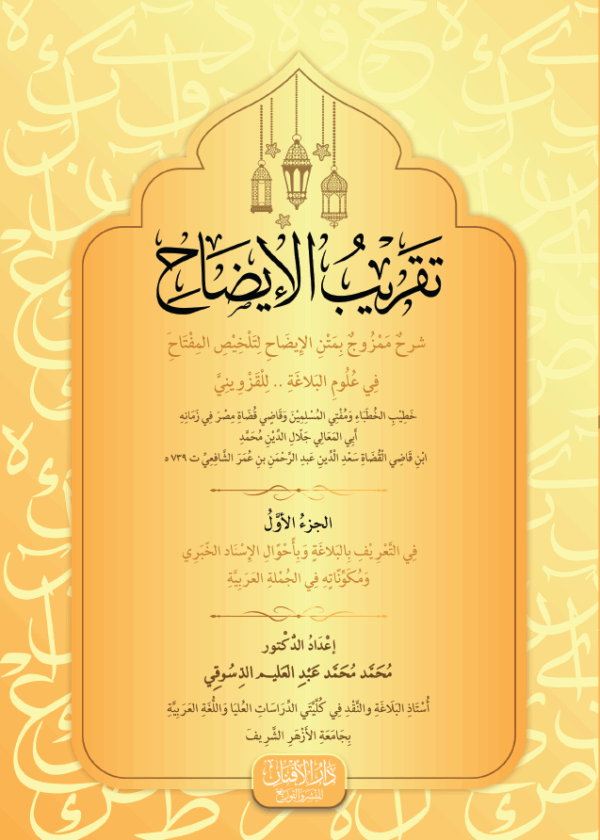 تَقْرِيبُ الإِيضَاحِ
شرحٌ مَمْزُوجٌ بِمَتْنِ الإِيضَاحِ لِتَلْخِيْصِ المِفْتَاحِ
فِي عُلُومِ البَلَاغَةِ .. لِلْقَزْوِينِيِّ
خَطِيْبِ الخُطَبَاءِ وَمُفْتِي المُسْلِمِيْنَ وَقَاضِي قُضَاةِ مِصْرَ فِي زَمَانِهِ
أَبِي المَعَالِي جَلَالِ الدِّيْنِ مُحَمَّدِ
ابْنِ قَاضِي الْقُضَاةِ سَعْدِ الدِّينِ عَبدِ الرَّحْمَنِ بنِ عُمَرَ الشَّافِعِيِّ ت ٧٣٩ ه
الجزءُ الأوَّلُ
فِي التَّعْرِيْفِ بِالبَلَاغَةِ وَبِأَحْوَالِ الإِسْنَادِ الخَبَرِي
وَمُكَوِّنَاتِهِ فِي الجُمْلَةِ العَرَبِيَّةِ
إعْدَادُ الدُّكْتور
مُحَمَّد مُحَمَّد عَبْدِ العَلِيـم الدِسُوقِي
أُسْتَاذِ البَلَاغَةِ والنَّقْدِ فِي كُلِّيَّتَيِ الدِّرَاسَاتِ العُلْيَا وَاللُّغَةِ العَرَبِيَّةِ
بِجَامَعَةِ الأَزْهَرِ الشَّرِيفَ
دَارُ الإِفْنَانِ
للنشر والتوزيع